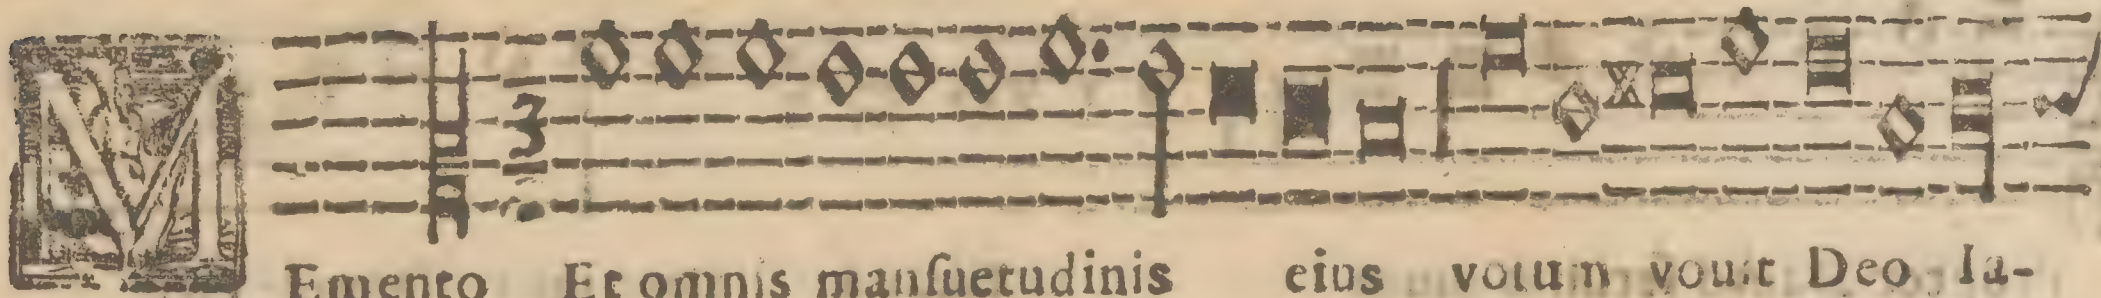 MEmento Et omnis manſuetudinis eius votum vouit Deo Ia-